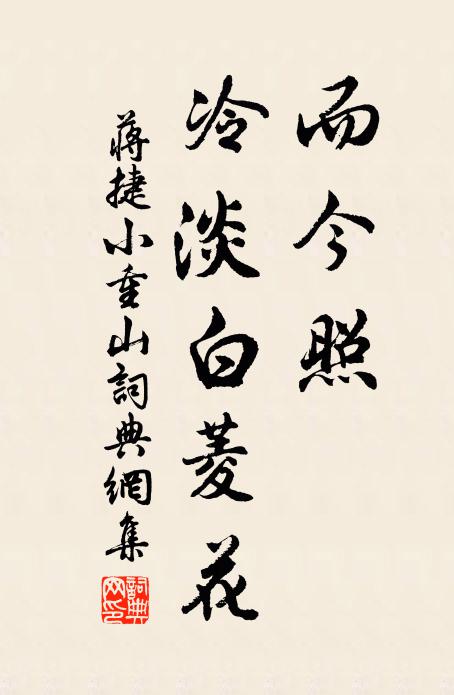 而今照
冷淡白菱花
蔣捷小重山詞典網集
詞典
网印